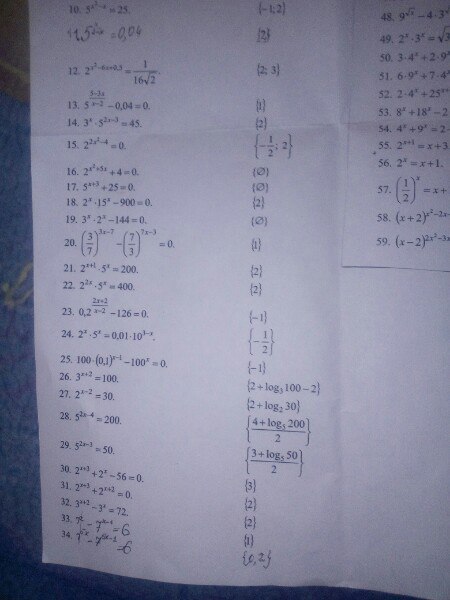 10. 5^{x²-x} = 25. {-1; 2}
= 0,04 {2}
12. 2^{x²-6x+0,5} = 1/(16√2). {2; 3}
13. 5^{(5-3x)/(x-2)} - 0,04 = 0. {1}
14. 3^x · 5^{2x-3} = 45. {2}
15. 2^{2x²-4} = 0. {-1/2; 2}
16. 2^{x²+5x} + 4 = 0. {∅}
17. 5^{x+3} + 25 = 0. {∅}
18. 2^x · 15^x - 900 = 0. {2}
19. 3^x · 2^x - 144 = 0. {∅}
20. (3/7)^{3x-7} - (7/3)^{7x-3} = 0. {1}
21. 2^{x+1} · 5^x = 200. {2}
22. 2^{2x} · 5^x = 400. {2}
23. 0,2^{(2x+2)/(x-2)} - 126 = 0. {-1}
24. 2^x · 5^x = 0,01·10^{3-x}. {-1/2}
25. 100·(0,1)^{x-1} - 100^x = 0. {-1}
26. 3^{x+2} = 100. {2 + log₃ 100 - 2}
27. 2^{x-2} = 30. {2 + log₂ 30}
28. 5^{2x-4} = 200. {(4 + log₅ 200)/2}
29. 5^{2x-3} = 50. {(3 + log₅ 50)/2}
30. 2^{x+3} + 2^x - 56 = 0. {3}
31. 2^{x+3} + 2^{x+2} = 0. {2}
32. 3^{x+2} - 3^x = 72. {2}
33. = 6 {1}
34. = 6 {0,2}
48. 9^{√x} - 4·3
49. 2^x · 3^x = √3
50. 3·4^x + 2·9
51. 6·9^x + 7·4
52. 2·4^x + 25^x
53. 8^x + 18^x - 2
54. 4^x + 9^x = 2
55. 2^{x+1} = x + 3
56. 2^x = x + 1.
57. (1/2)^x = x +
58. (x + 2)^{x²-2x-
59. (x - 2)^{2x²-3x